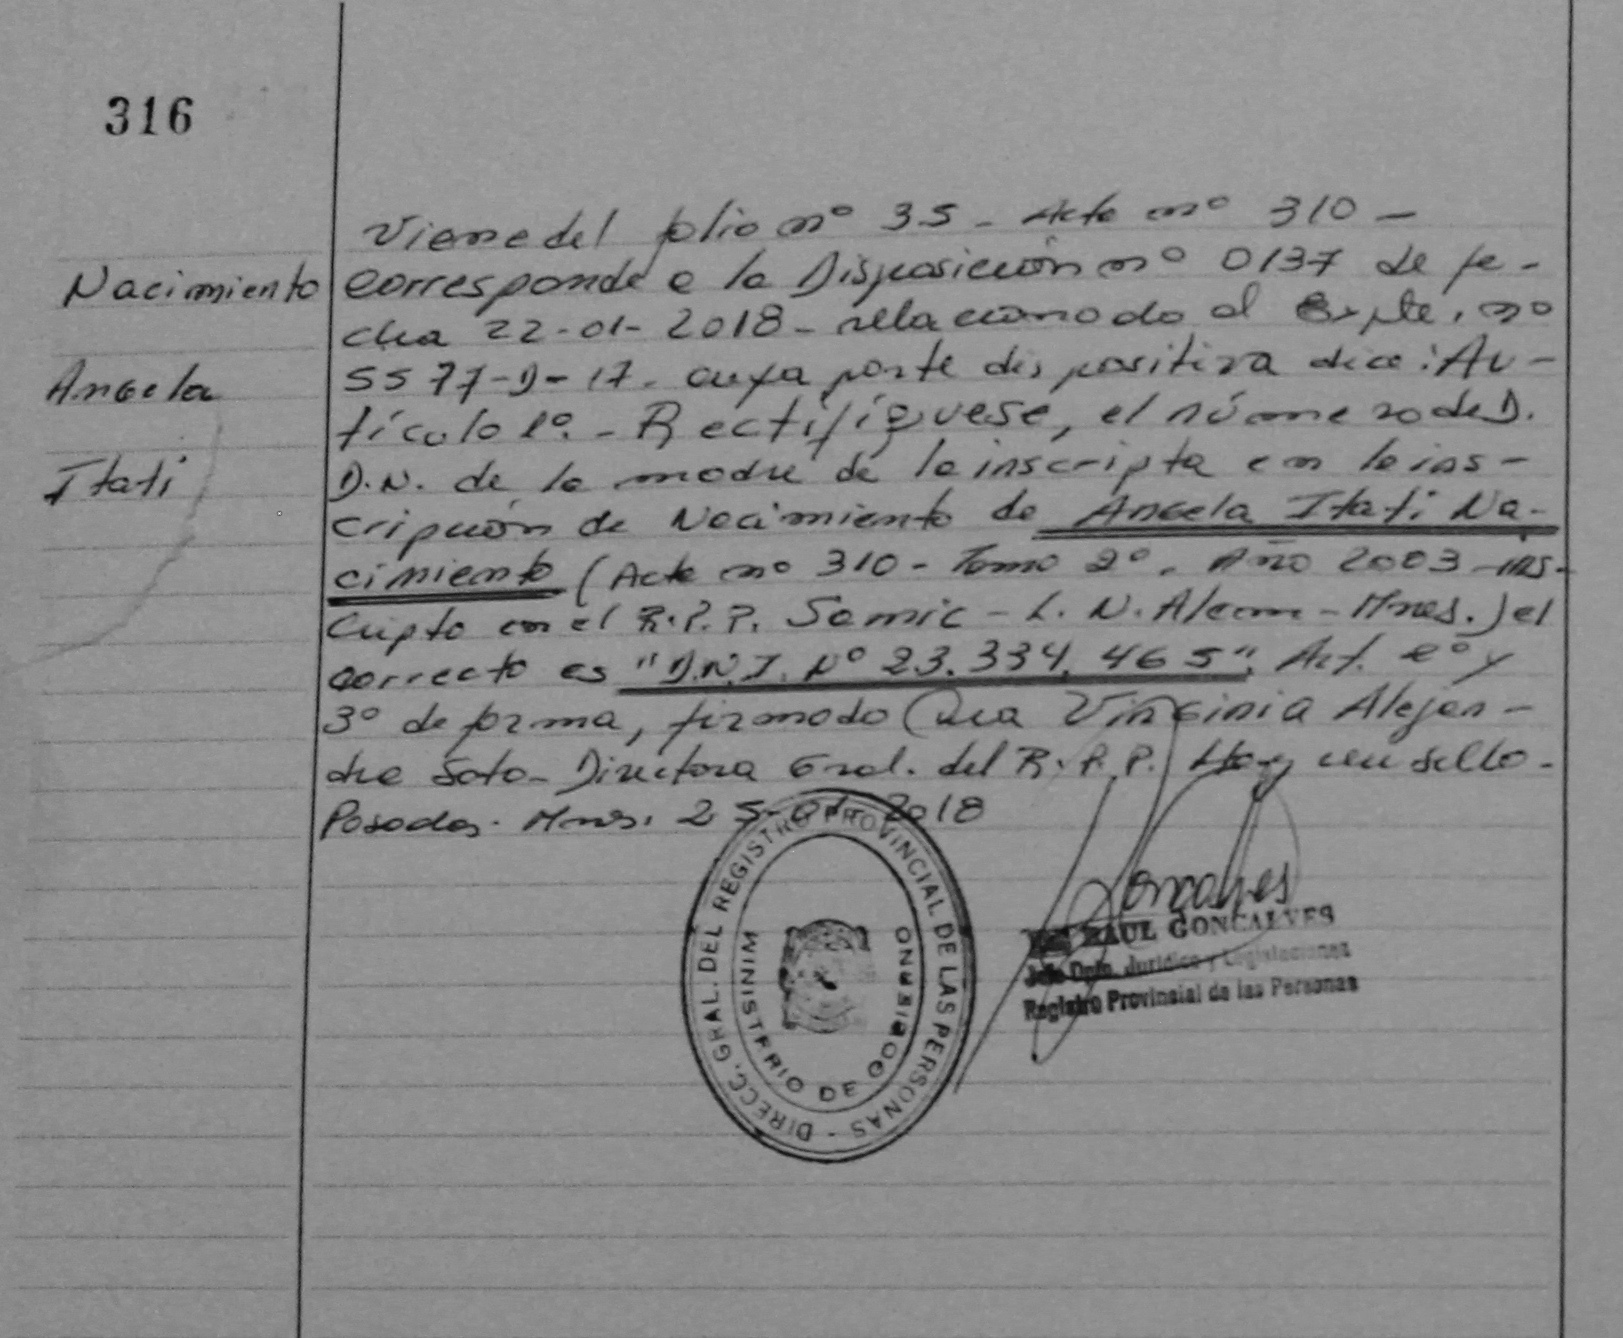 316
Nacimiento
Angela
Itati
Viene del folio nº 35 - Acta nº 310 -
Corresponde a la Disposición nº 0137 de fe-
cha 22-01-2018 - relacionado al Expte. nº
5577-D-17. cuya parte dispositiva dice: Ar-
tículo 1º. - Rectifíquese, el número de D.
D.N. de la madre de la inscripta en la ins-
cripción de Nacimiento de Angela Itati Na-
cimiento (Acta nº 310 - Tomo 2º. Año 2003 - ins-
cripto en el R.P.P. Samic - L. N. Alem - Mnes.) el
correcto es "D.N.I. Nº 23.334.465". Art. 2º y
3º de forma, firmado Dra Virginia Alejan-
dra Soto - Directora Gral. del R.P.P. Hay un sello.
Posadas. Mnes. 25-01-2018
DIRECC. GRAL. DEL REGISTRO PROVINCIAL DE LAS PERSONAS -
MINISTERIO DE GOBIERNO
Goncalves
RAUL GONCALVES
Jefe Dpto. Jurídico y Legislaciones
Registro Provincial de las Personas